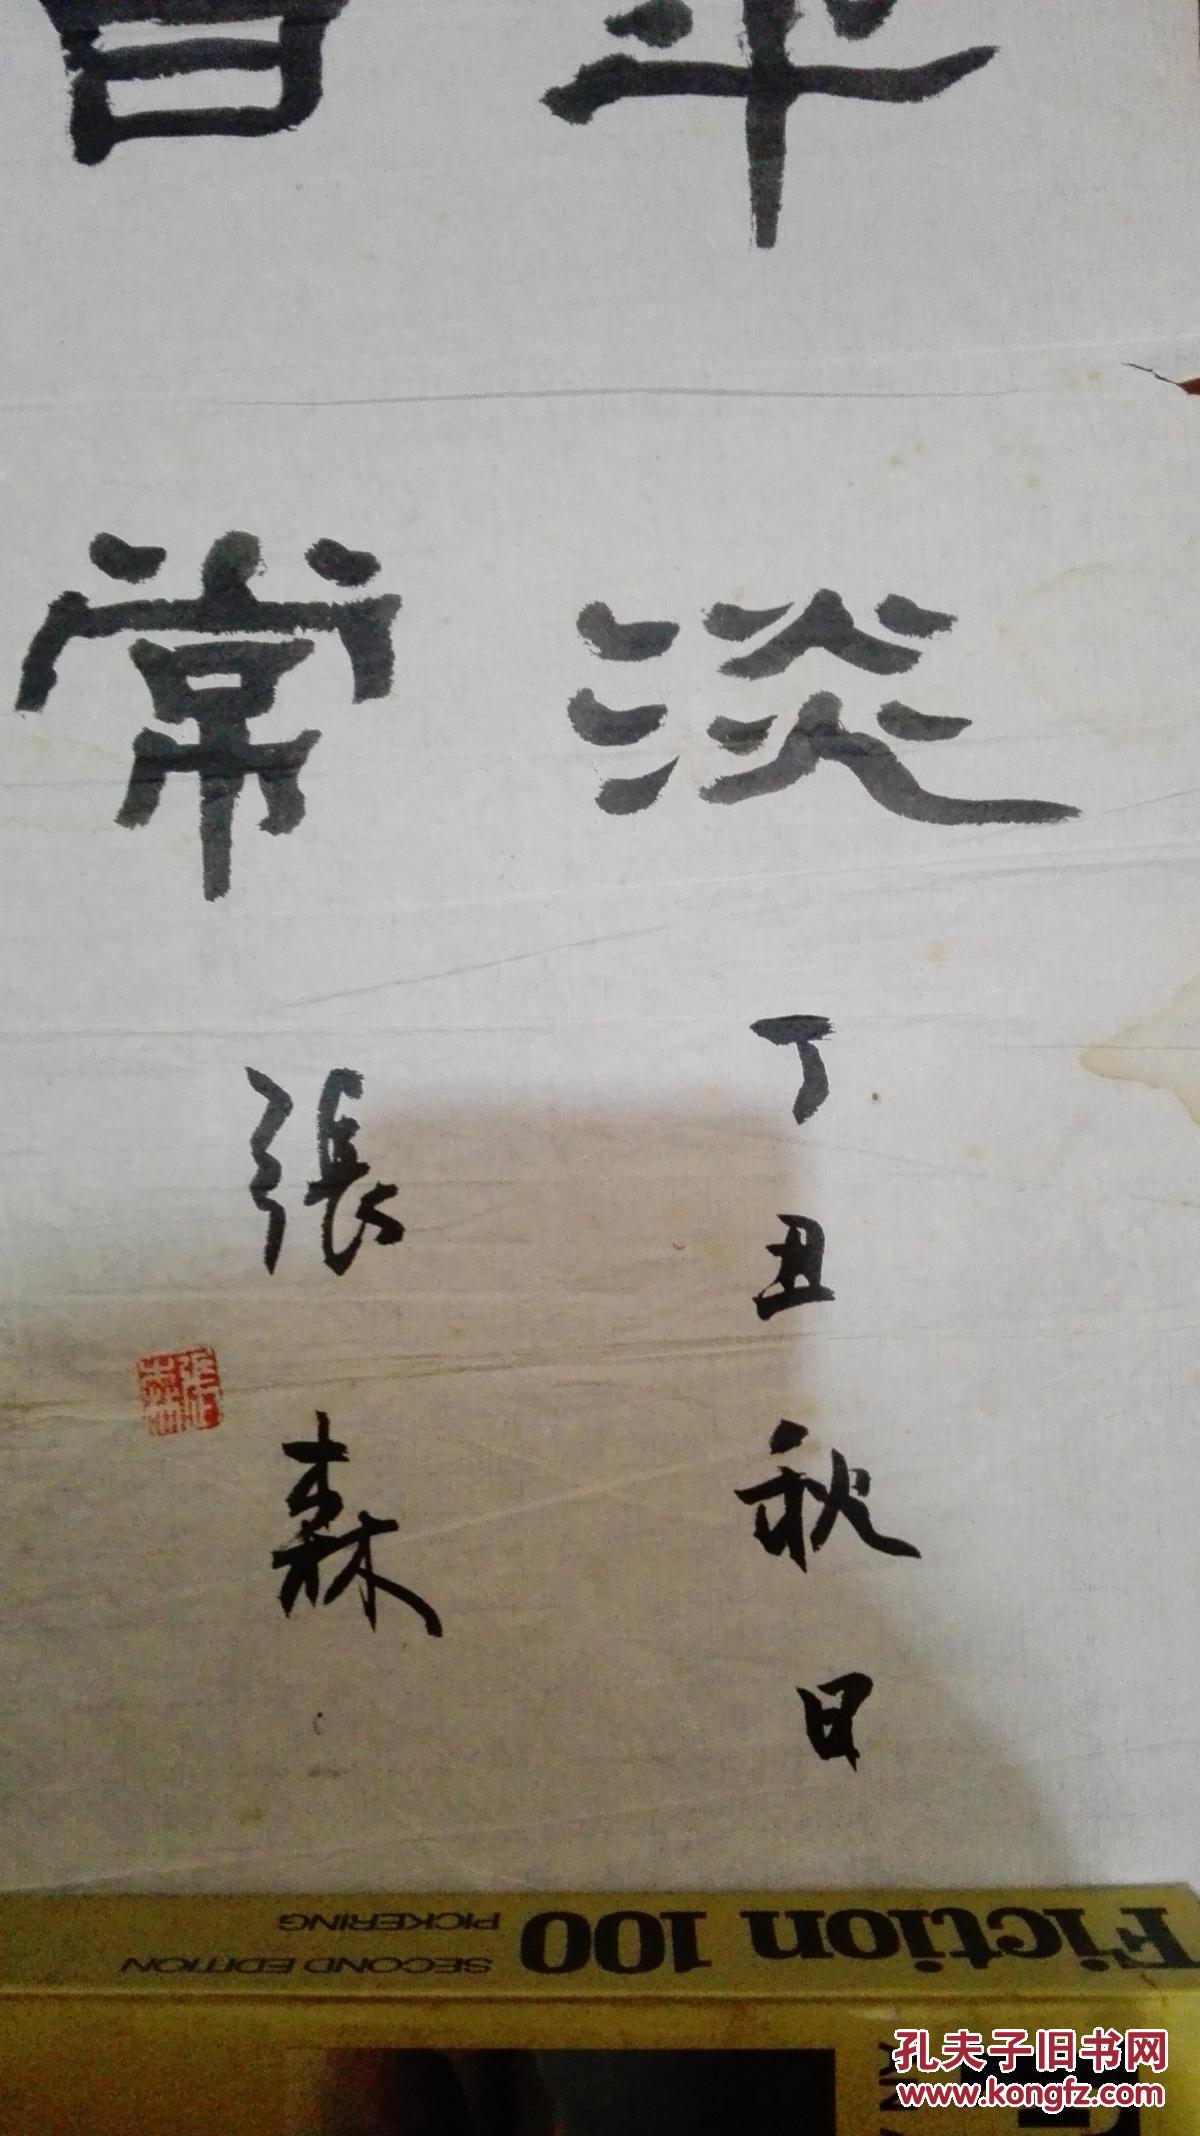 平淡
丁丑秋日
常
張森
張森
Fiction 100
SECOND EDITION
PICKERING
孔夫子旧书网
www.kongfz.com